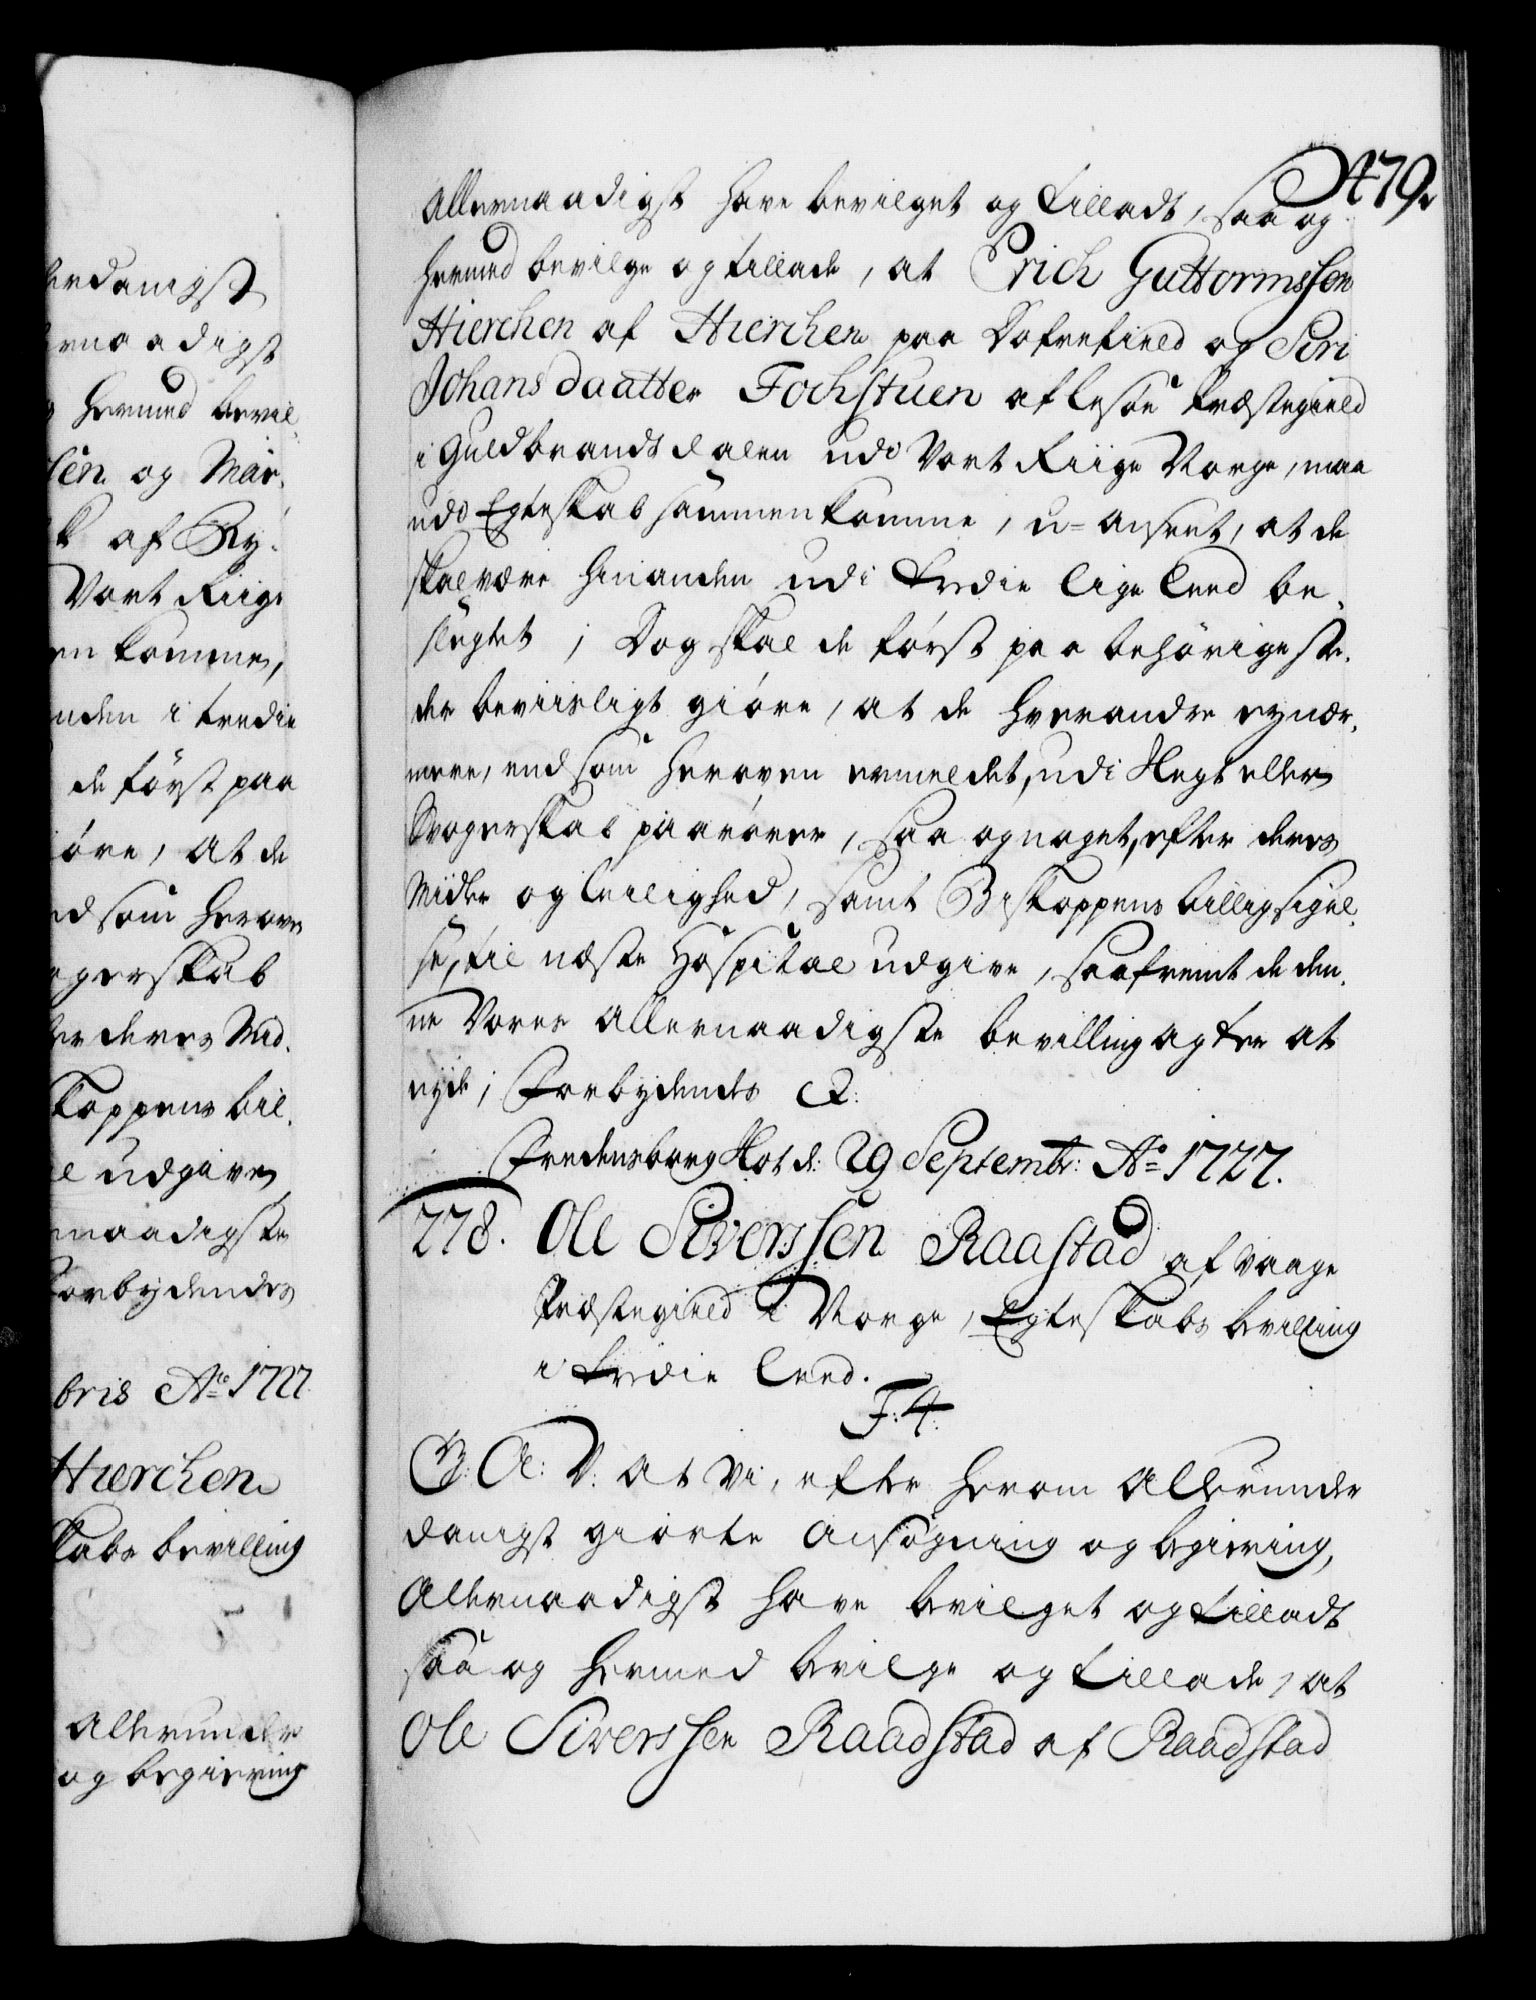 erdanigst
ernaadigst
g hermed bevil-
sen og Mar-
k af Ry-
Vort Riige
en komme,
nden i tredie
de først paa
iøre, at de
nd som heroven
ogerskab
ter deres Mid-
koppens bil-
l udgive
rnaadigste
Forbydendes
bris Ao 1727.
Hierchen
skabs bevilling
Allerunder
og begiering
479.
Allernaadigst have bevilget og tilladt, saa og
hermed bevilge og tillade, at Erich Guttormssen
Hierchen af Hierchen paa Dofrefield og Siri
Johansdaatter Fochstuen af Lessøe Præstegield
i Guldbrandsdalen udi Vort Riige Norge, maa
udi Egteskab sammenkomme, u-anseet, at de
skal være hinanden udi tredie lige Leed be-
slegtet; Dog skal de først paa behørige ste-
der beviisligt giøre, at de hverandre ey nær-
mere, end som heroven ermeldet, udi Slegt eller
Svogerskab paarører, saa og noget, efter deres
Midler og leilighed, samt Biskoppens billigsigel-
se, til næste Hospital udgive, saafremt de den-
ne Vores allernaadigste bevilling agter at
nyde; Forbydendes &:
Fredensborg Slot d: 29 Septembr: Ao 1727.
278. Ole Siverssen Raastad af Vaage
Præstegield i Norge, Egteskabs bevilling
i tredie Leed.
F:4.
G: A: V: at Vi, efter herom Allerunder
danigst giorte Ansøgning og begiering,
Allernaadigst have bevilget og tilladt
saa og hermed bevilge og tillade, at
Ole Siverssen Raadstad af Raadstad